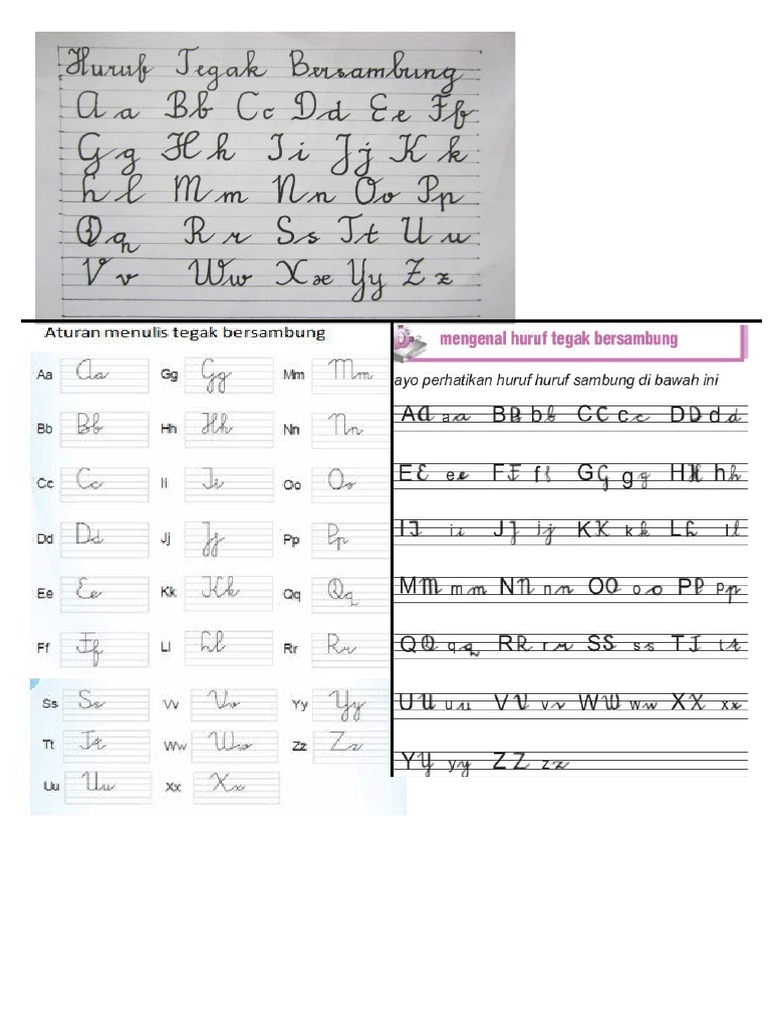 Huruf Tegak Bersambung
Aa Bb Cc Dd Ee Ff
Gg Hh Ii Jj Kk
Ll Mm Nn Oo Pp
Qq Rr Ss Tt Uu
Vv Ww Xx Yy Zz
Aturan menulis tegak bersambung
Aa Aa Gg Gg Mm Mm
Bb Bb Hh Hh Nn Nn
Cc Cc Ii Ii Oo Oo
Dd Dd Jj Jj Pp Pp
Ee Ee Kk Kk Qq Qq
Ff Ff Ll Ll Rr Rr
Ss Ss Vv Vv Yy Yy
Tt Tt Ww Ww Zz Zz
Uu Uu Xx Xx
mengenal huruf tegak bersambung
ayo perhatikan huruf huruf sambung di bawah ini
AA aa BB bb CC cc DD dd
EE ee FF ff GG gg HH hh
II ii JJ jj KK kk LL ll
MM mm NN nn OO oo PP pp
QQ qq RR rr SS ss TT tt
UU uu VV vv WW ww XX xx
YY yy ZZ zz